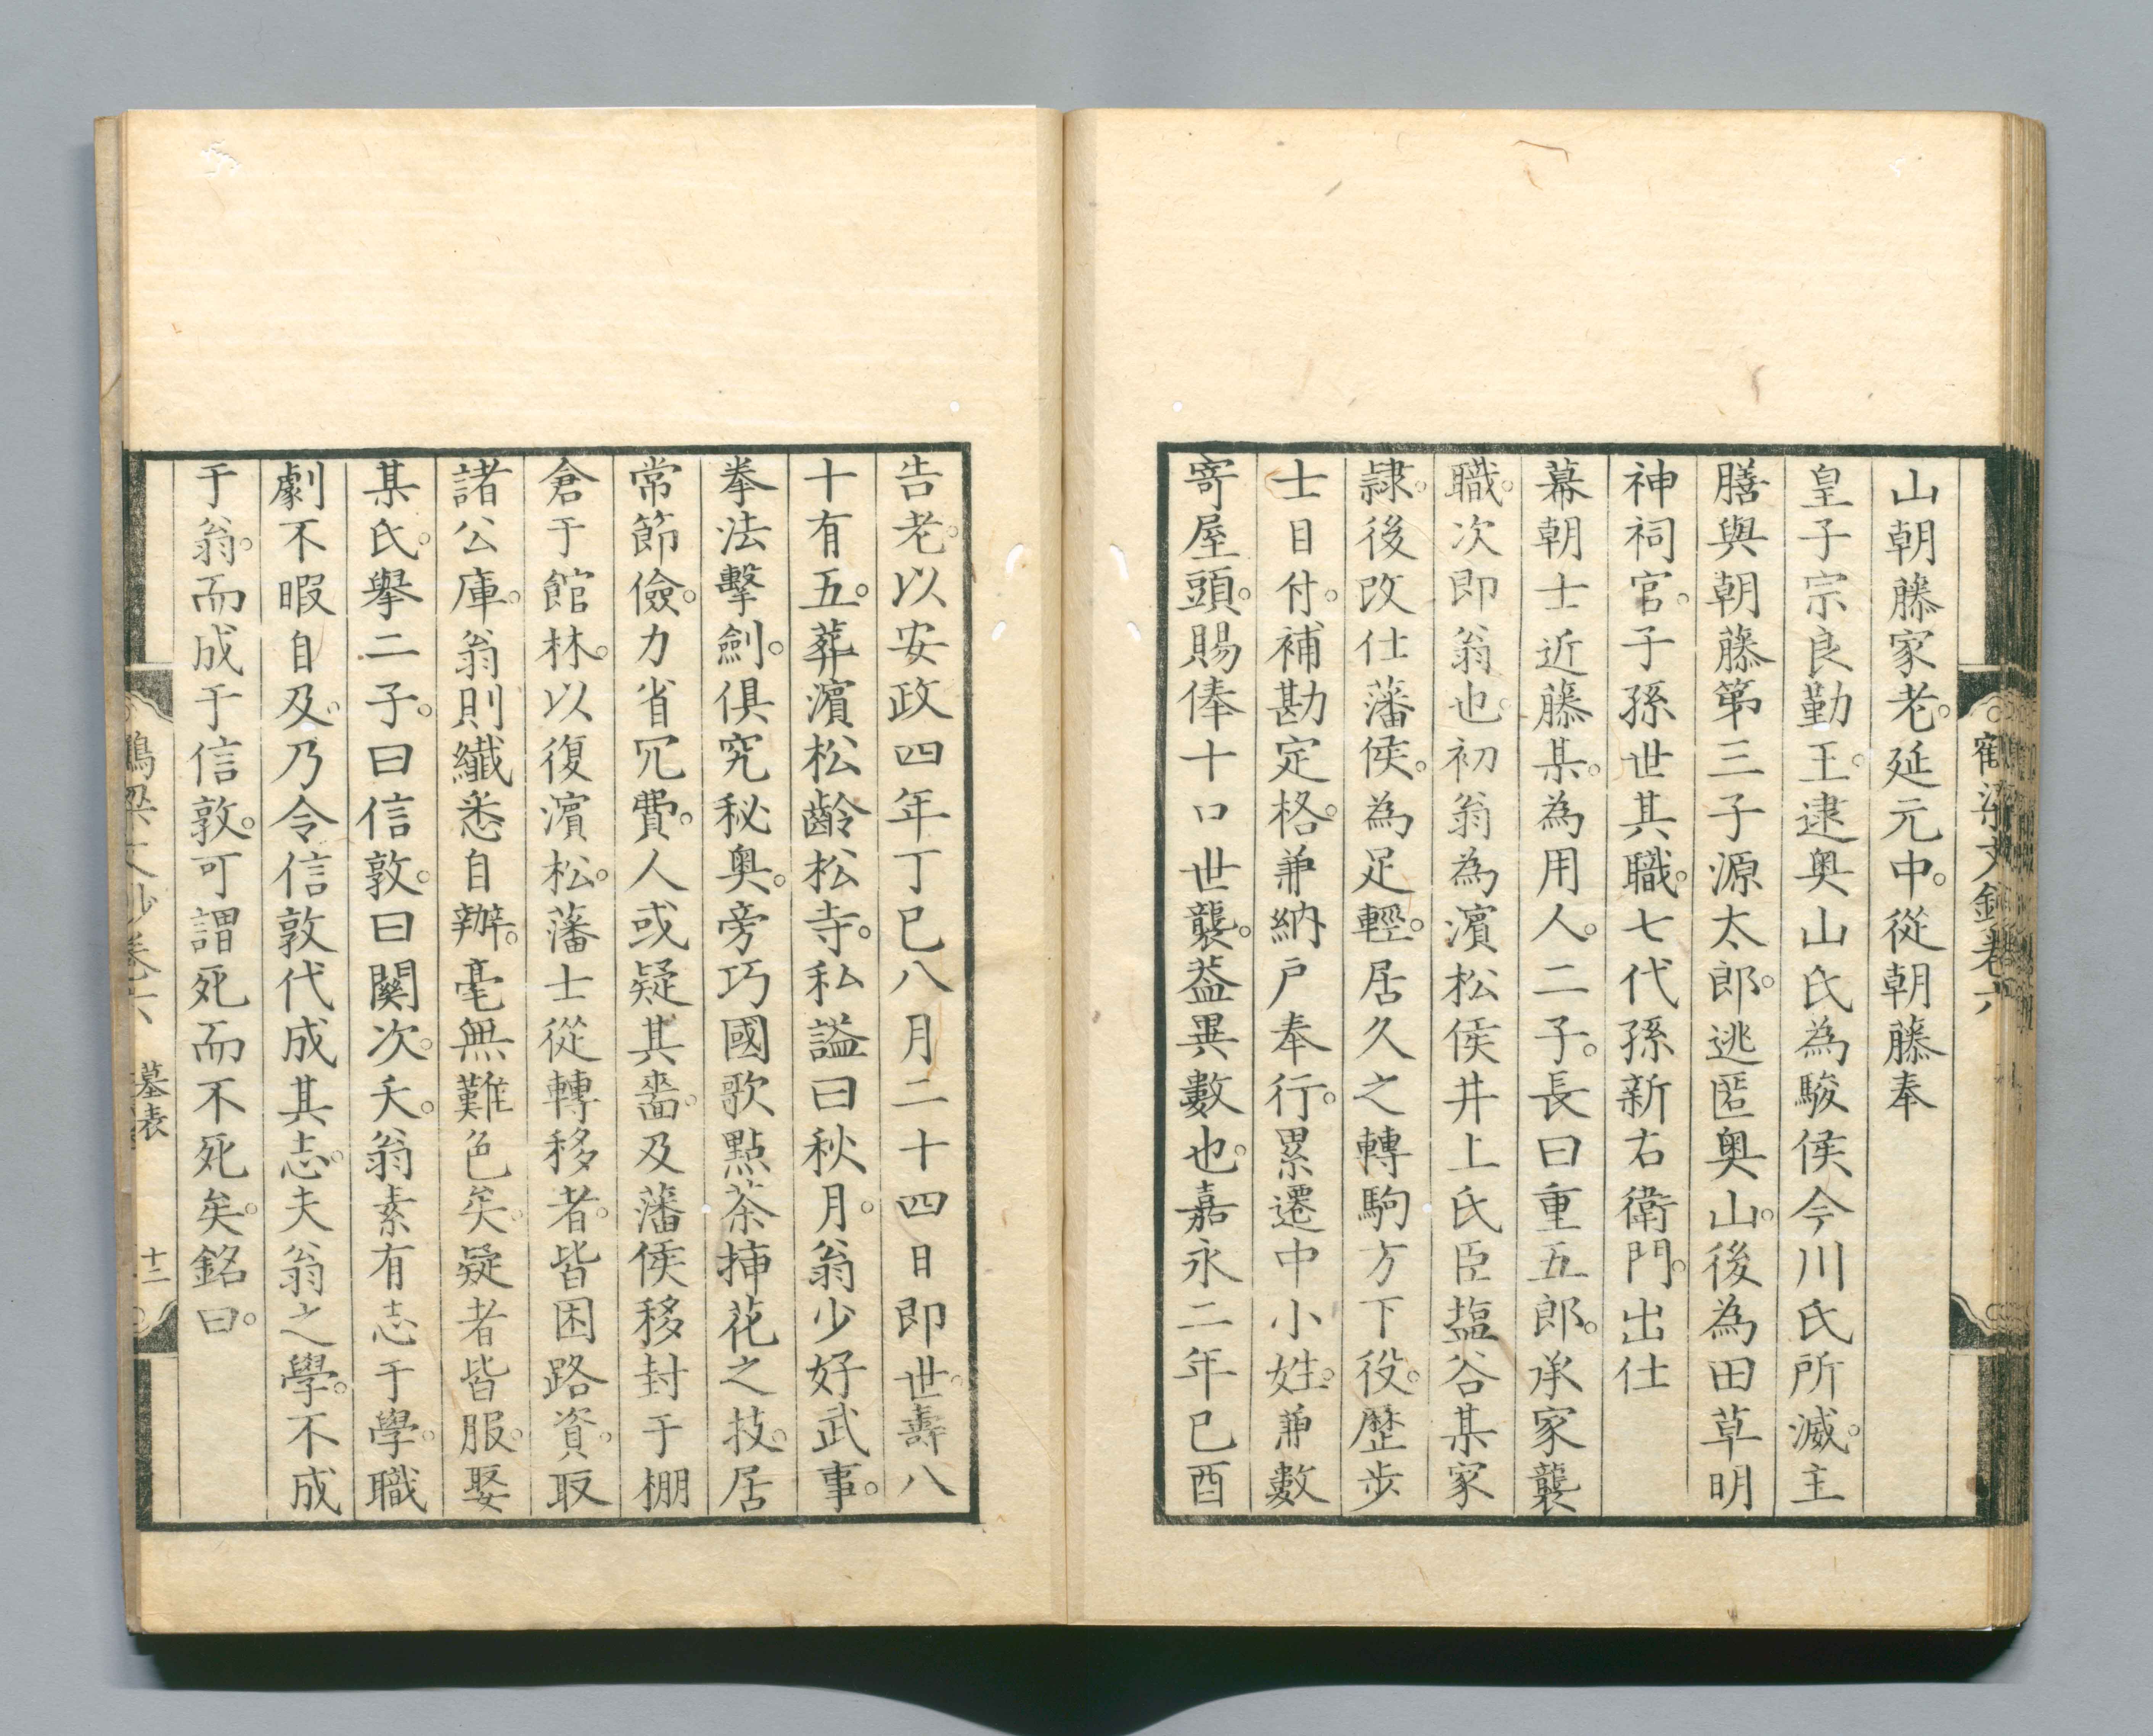 山朝藤家老。延元中。從朝藤奉
皇子宗良勤王。逮奥山氏為駿侯今川氏所滅。主
膳與朝藤第三子源太郎。逃匿奥山。後為田草明
神祠官。子孫世其職。七代孫新右衛門。出仕
幕朝士近藤某。為用人。二子。長曰重五郎。承家襲
職。次即翁也。初翁為濱松侯井上氏臣塩谷某家
隷。後改仕藩侯。為足輕。居久之轉駒方下役。歷步
士目付。補勘定格。兼納戶奉行。累遷中小姓。兼數
寄屋頭。賜俸十口世襲。益異數也。嘉永二年已酉
告老。以安政四年丁巳八月二十四日即世。壽八
十有五。葬濱松齡松寺。私謚曰秋月。翁少好武事。
拳法擊劍。俱究秘奥。旁巧國歌點茶挿花之技。居
常節儉。力省冗費。人或疑其嗇。及藩侯移封于棚
倉于館林。以復濱松。藩士從轉移者。皆困路資。取
諸公庫。翁則纎悉自辦。毫無難色矣。疑者皆服。娶
某氏。擧二子。曰信敦。曰闕次。夭。翁素有志于學。職
劇不暇自及。乃令信敦代成其志。夫翁之學。不成
于翁。而成于信敦。可謂死而不死矣。銘曰。
墓表
十二